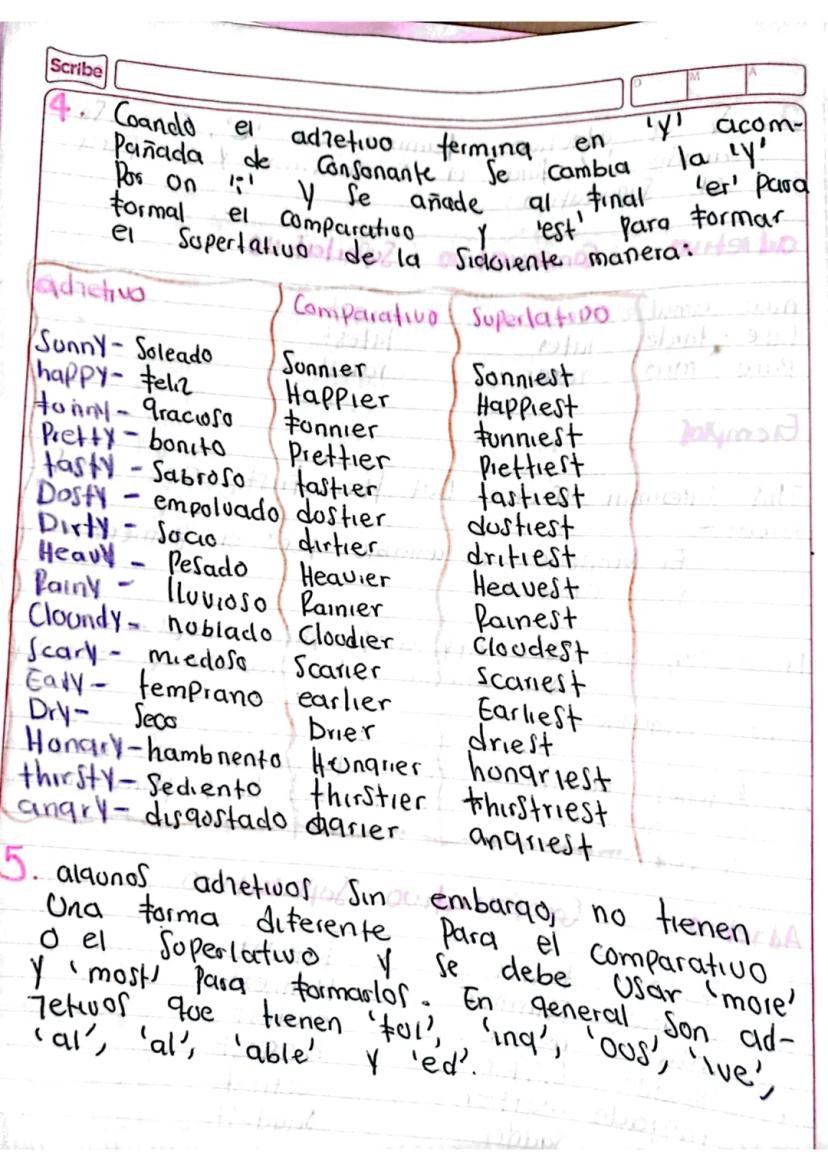 Scribe
D M A
4. Coando el adjetivo termina en 'y' acom-
pañada de consonante se cambia la 'y'
por on 'i' y se añade al final 'er' para
formal el comparativo y 'est' para formar
el superlativo de la sigoiente manera:
adjetivo Comparativo Superlativo
Sunny - Soleado Sonnier Sonniest
happy - feliz Happier Happiest
fonny - gracioso fonnier funniest
Pretty - bonito Prettier Prettiest
tasty - Sabroso tastier tastiest
Dosty - empolvado dostier dustiest
Dirty - Socio dirtier dritiest
Heavy - Pesado Heavier Heavest
Rainy - lluvioso Rainier Rainest
Cloundy - noblado Cloudier Cloudest
Scary - miedoso Scarier Scariest
Eady - temprano earlier Earliest
Dry - Seco Drier driest
Hongry - hambriento Hongrier hongriest
thirsty - Sediento thirstier thirstriest
angry - disgostado angriest
5. algonos adjetivos sin embargo, no tienen
Una forma diferente para el comparativo
o el soperlativo y se debe usar 'more'
y 'most' para formarlos. En general son ad-
jetivos que tienen 'fol', 'ing', 'oos', 'ive',
'al', 'al', 'able' y 'ed'.